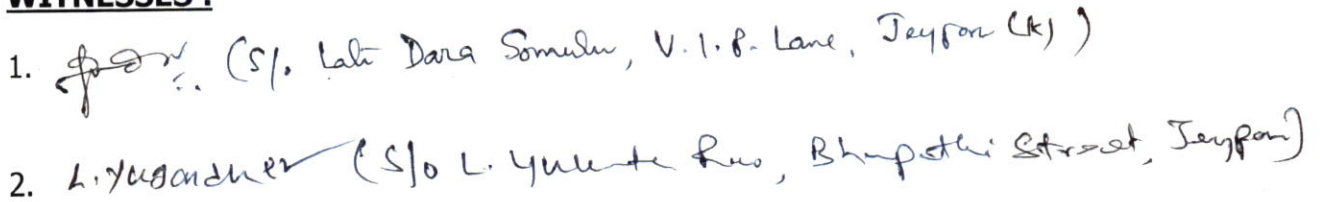 WITNESSES :
1. (S/. Late Dara Somulu, V.I.P. Lane, Jeypore (K))
2. L. Yugandher (S/o L. Rao, Bhupathi Street, Jeypore)